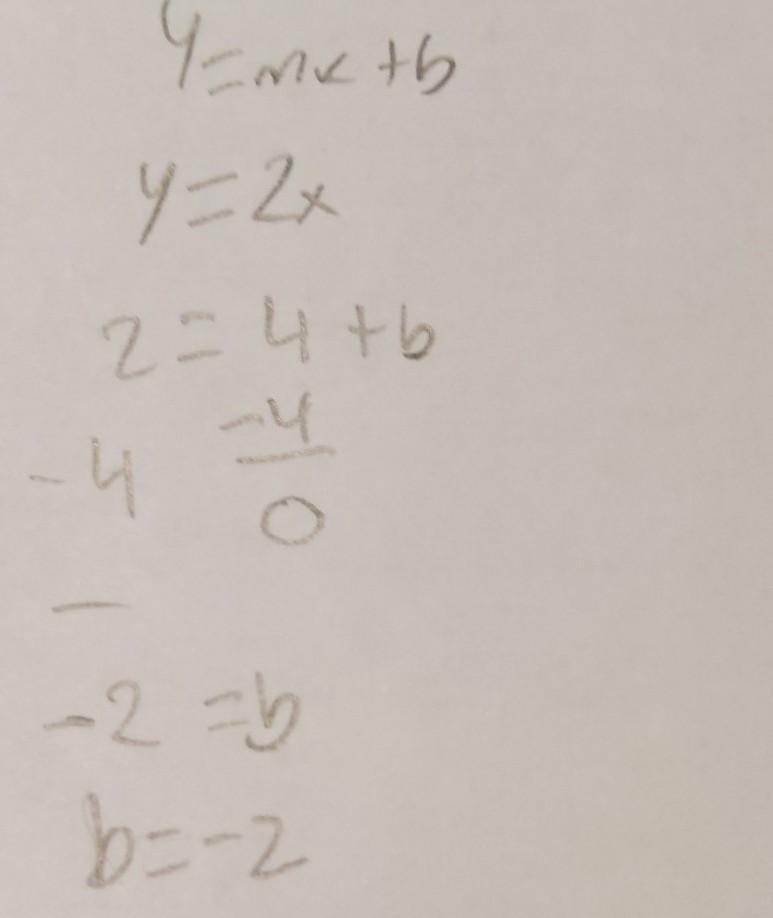 y=mx+b
y=2x
2=4+b
-4 -4
0
-2=b
b=-2